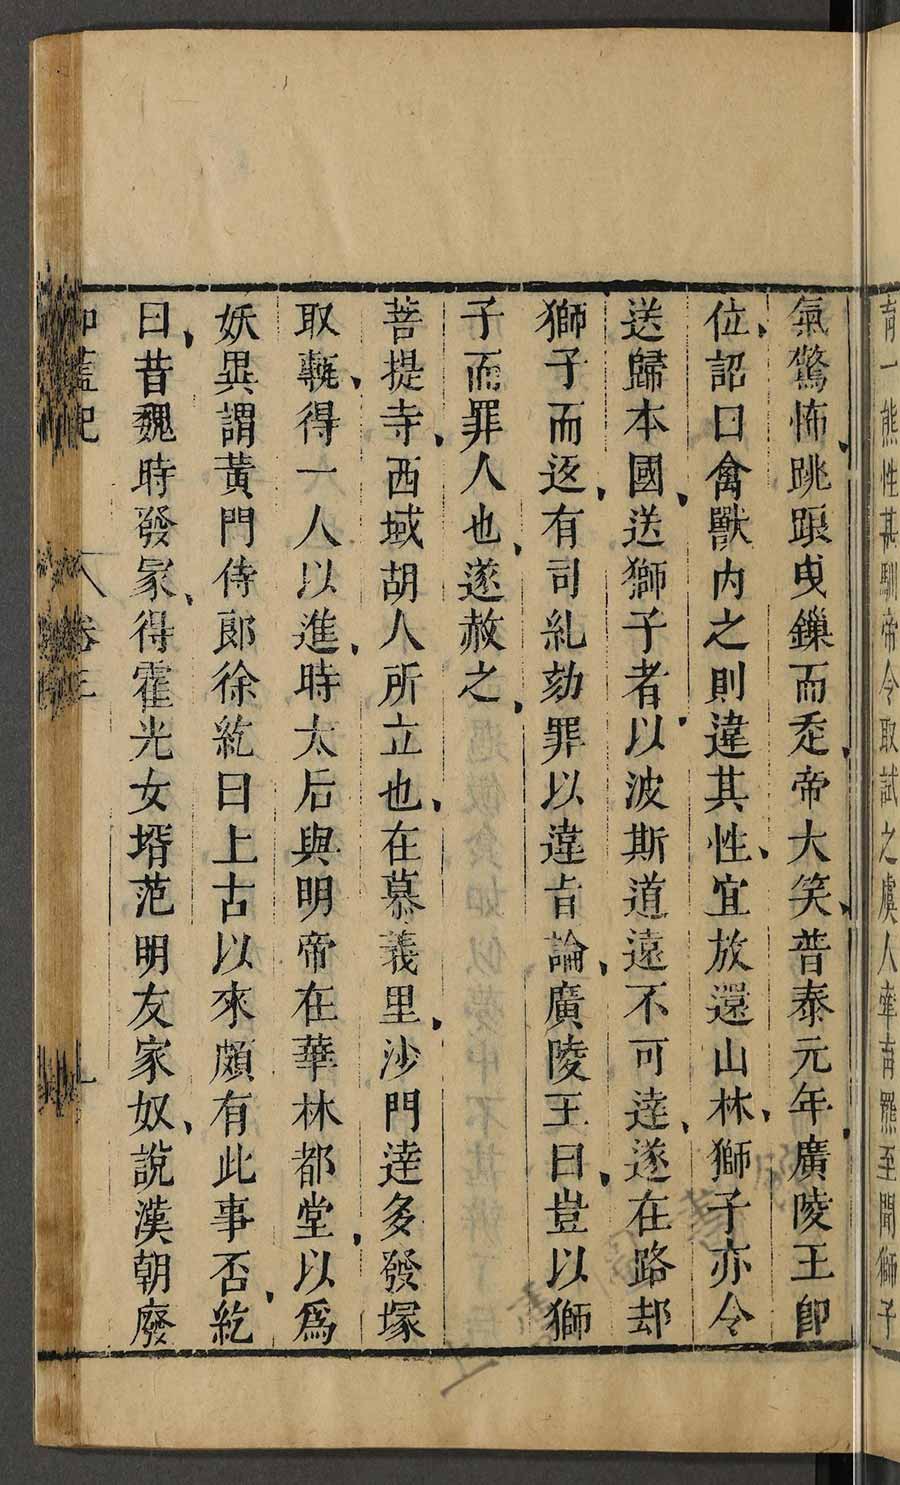 有一熊性甚馴帝令取試之虞人牽盲熊至聞獅子
氣驚怖跳踉曳鏁而走帝大笑普泰元年廣陵王卽
位詔曰禽獸內之則違其性宜放還山林獅子亦令
送歸本國送獅子者以波斯道遠不可達遂在路却
獅子而返有司糺劾罪以違旨論廣陵王曰豈以獅
子而罪人也遂赦之
菩提寺西域胡人所立也在慕義里沙門達多發塚
取甎得一人以進時太后與明帝在華林都堂以爲
妖異謂黃門侍郎徐紇曰上古以來頗有此事否紇
曰昔魏時發冢得霍光女壻范明友家奴說漢朝廢
伽藍記 卷三